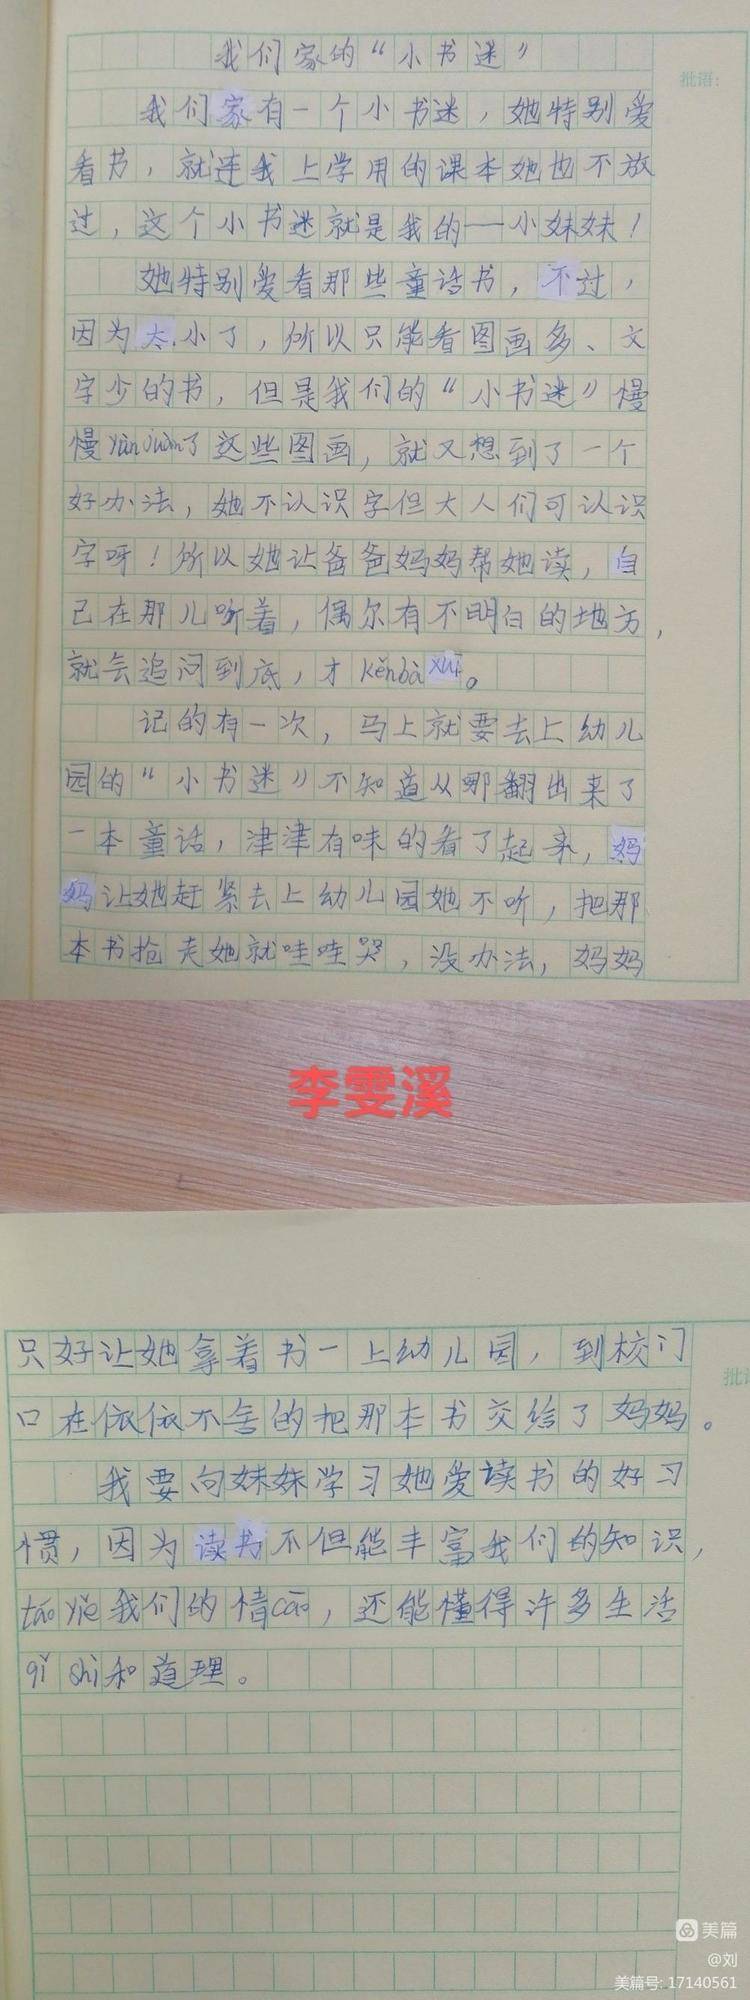 我们家的“小书迷”
批语：
我们家有一个小书迷，她特别爱
看书，就连我上学用的课本她也不放
过，这个小书迷就是我的——小妹妹！
她特别爱看那些童话书，不过，
因为太小了，所以只能看图画多、文
字少的书，但是我们的“小书迷”慢
慢yàn juàn了这些图画，就又想到了一个
好办法，她不认识字但大人们可认识
字呀！所以她让爸爸妈妈帮她读，自
己在那儿听着，偶尔有不明白的地方，
就会追问到底，才kěn bà xiū。
记的有一次，马上就要去上幼儿
园的“小书迷”不知道从哪翻出来了
一本童话，津津有味的看了起来，妈
妈让她赶紧去上幼儿园她不听，把那
本书抢走她就哇哇哭，没办法，妈妈
李雯溪
只好让她拿着书一上幼儿园，到校门
口在依依不舍的把那本书交给了妈妈。
批语
我要向妹妹学习她爱读书的好习
惯，因为读书不但能丰富我们的知识，
táo yě我们的情cāo，还能懂得许多生活
qǐ shì和道理。
美篇
@刘
美篇号: 17140561